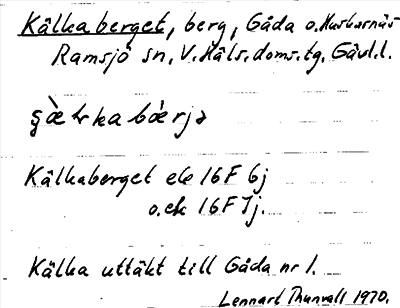 Kälkaberget, berg, Gåda o. Huskasnäs
Ramsjö sn, V. Häls. doms. tg, Gävl. l.
Kälkaberget ek 16F 6j
o. ek 16F 7j.
Kälka uttäkt till Gåda nr 1.
Lennart Thunvall 1970.